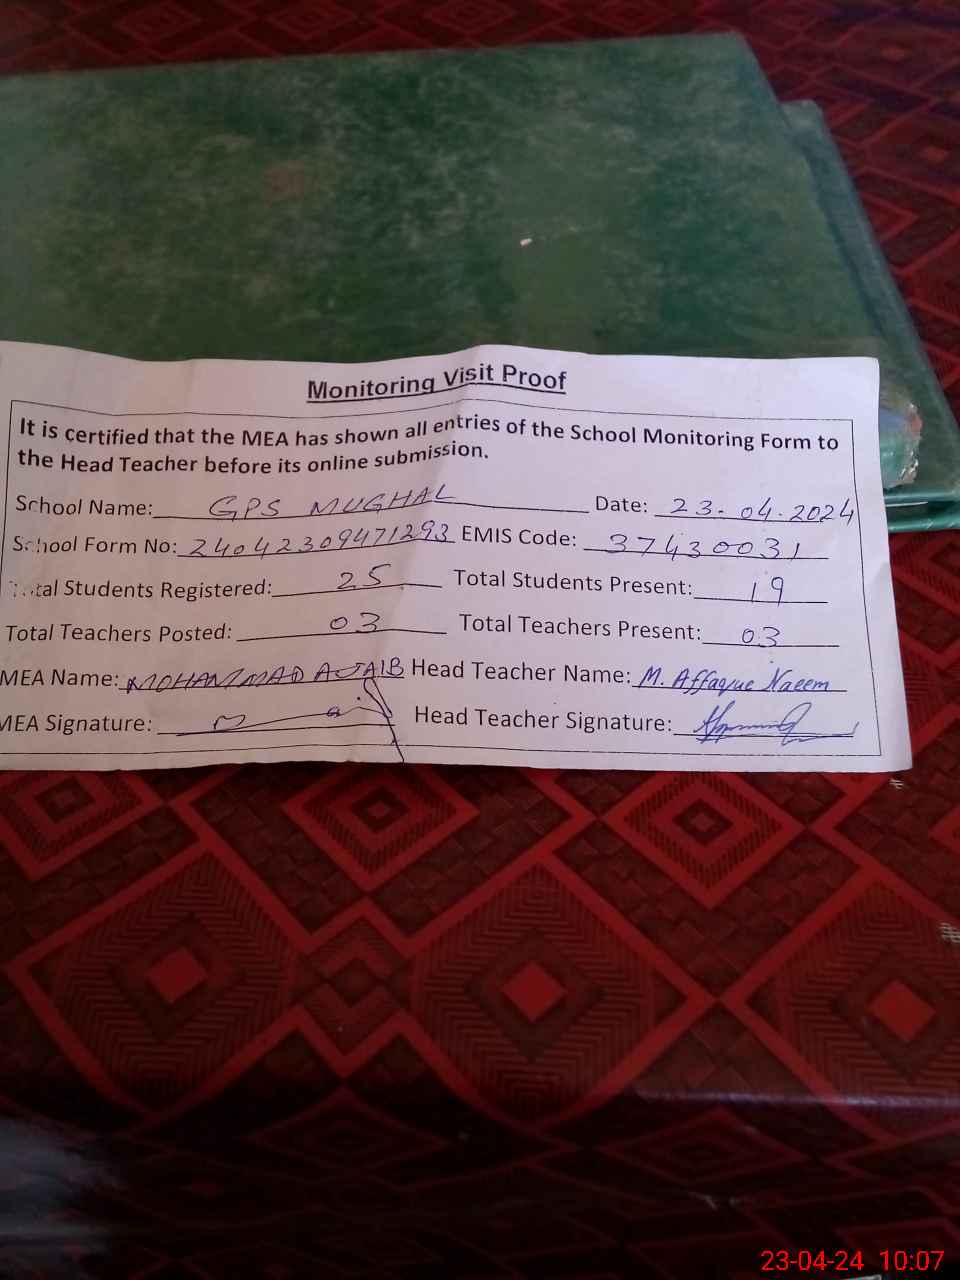 Monitoring Visit Proof
It is certified that the MEA has shown all entries of the School Monitoring Form to
the Head Teacher before its online submission.
School Name: GPS MUGHAL Date: 23-04-2024
School Form No: 24042309471293 EMIS Code: 37430031
Total Students Registered: 25 Total Students Present: 19
Total Teachers Posted: 03 Total Teachers Present: 03
MEA Name: MOHAMMAD AJAIB Head Teacher Name: M. Affaque Naeem
MEA Signature: Head Teacher Signature:
23-04-24 10:07